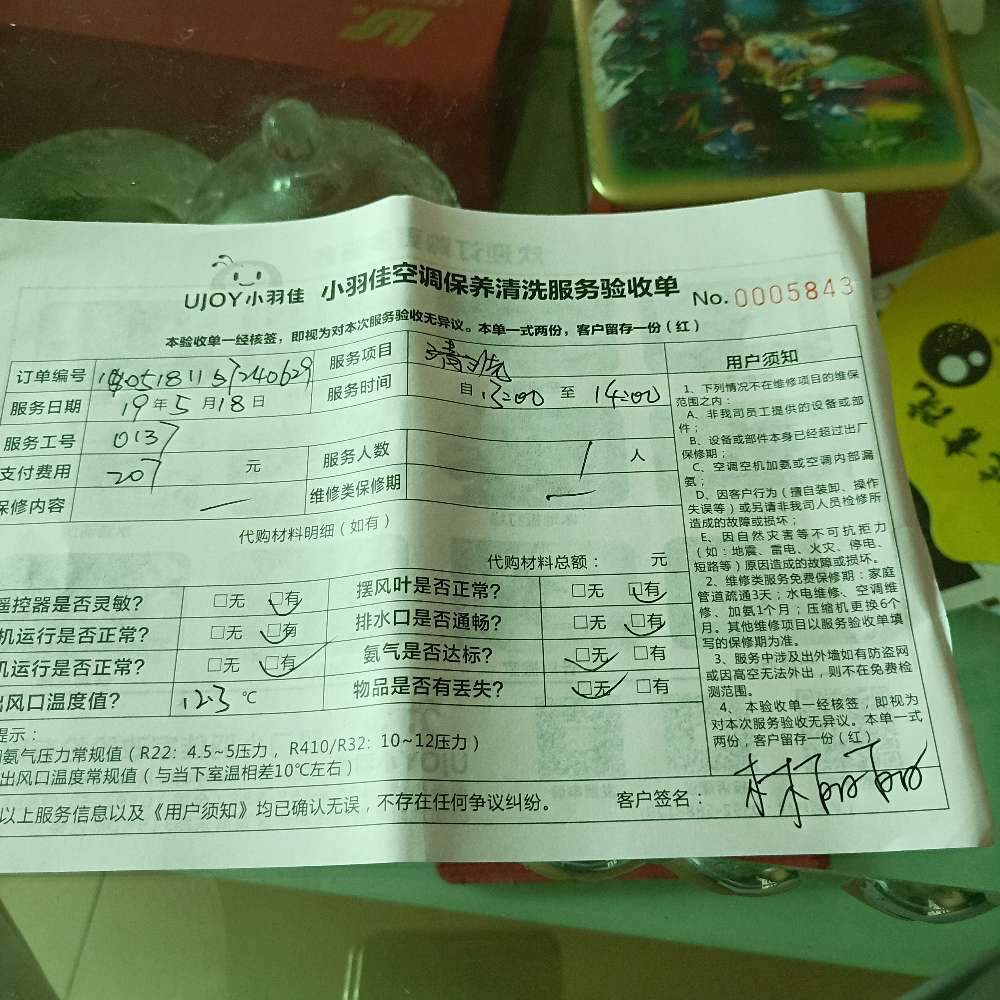 UJOY小羽佳 小羽佳空调保养清洗服务验收单 No.0005843
本验收单一经核签，即视为对本次服务验收无异议。本单一式两份，客户留存一份（红）
订单编号
服务项目 清洗
服务日期 19年5月18日
服务时间 自13:00 至 14:00
服务工号 0137
支付费用 207 元
服务人数 1 人
保修内容 —
维修类保修期 —
代购材料明细（如有）
代购材料总额： 元
遥控器是否灵敏? □无 □有
摆风叶是否正常? □无 □有
机运行是否正常? □无 □有
排水口是否通畅? □无 □有
机运行是否正常? □无 □有
氨气是否达标? □无 □有
出风口温度值? 12.3 ℃
物品是否有丢失? □无 □有
提示：
氨气压力常规值（R22: 4.5~5压力，R410/R32: 10~12压力）
出风口温度常规值（与当下室温相差10℃左右）
以上服务信息以及《用户须知》均已确认无误，不存在任何争议纠纷。 客户签名：
用户须知
1、下列情况不在维修项目的维保
范围之内：
A、非我司员工提供的设备或部
件；
B、设备或部件本身已经超过出厂
保修期；
C、空调空机加氨或空调内部漏
氨；
D、因客户行为（擅自装卸、操作
失误等）或另请非我司人员检修所
造成的故障或损坏；
E、因自然灾害等不可抗拒力
（如：地震、雷电、火灾、停电、
短路等）原因造成的故障或损坏。
2、维修类服务免费保修期：家庭
管道疏通3天；水电维修、空调维
修、加氨1个月；压缩机更换6个
月。其他维修项目以服务验收单填
写的保修期为准。
3、服务中涉及出外墙如有防盗网
或因高空无法外出，则不在免费检
测范围。
4、本验收单一经核签，即视为
对本次服务验收无异议。本单一式
两份，客户留存一份（红）